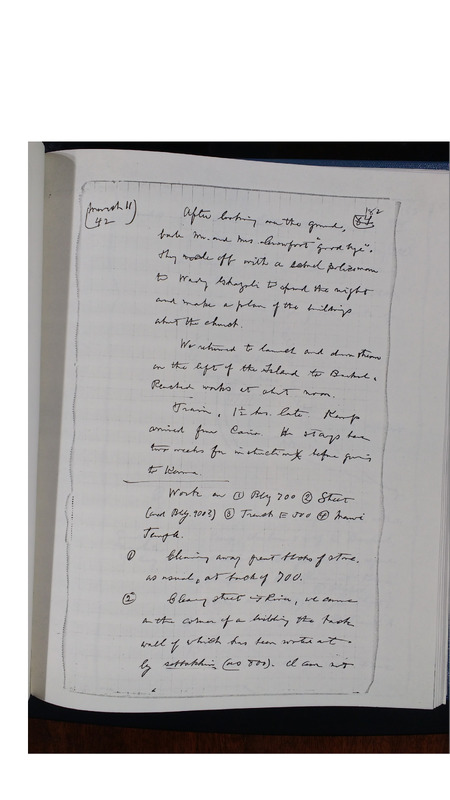 March 11
42
182
After looking over the ground,
bade Mr. and Mrs. Crowfoot "good bye".
They rode off with a school policeman
to Wady Ghazali to spend the night
and make a plan of the buildings
about the church.
We returned to launch and down stream
on the left of the Island to Barkal.
Reached works at about noon.
Train, 1½ hrs. late. Kemp
arrived from Cairo. He stays here
two weeks for instruction before going
to Kerma.
Work on ① Bldg 700 ② Street
(and Bldg. 900?) ③ Trench E 500 ④ Main
Temple.
① Clearing away great blocks of stone.
as usual, at back of 700.
② Clearing street, we came
on the corner of a building the back
wall of which has been
by sebbakhin (as 800). I am not